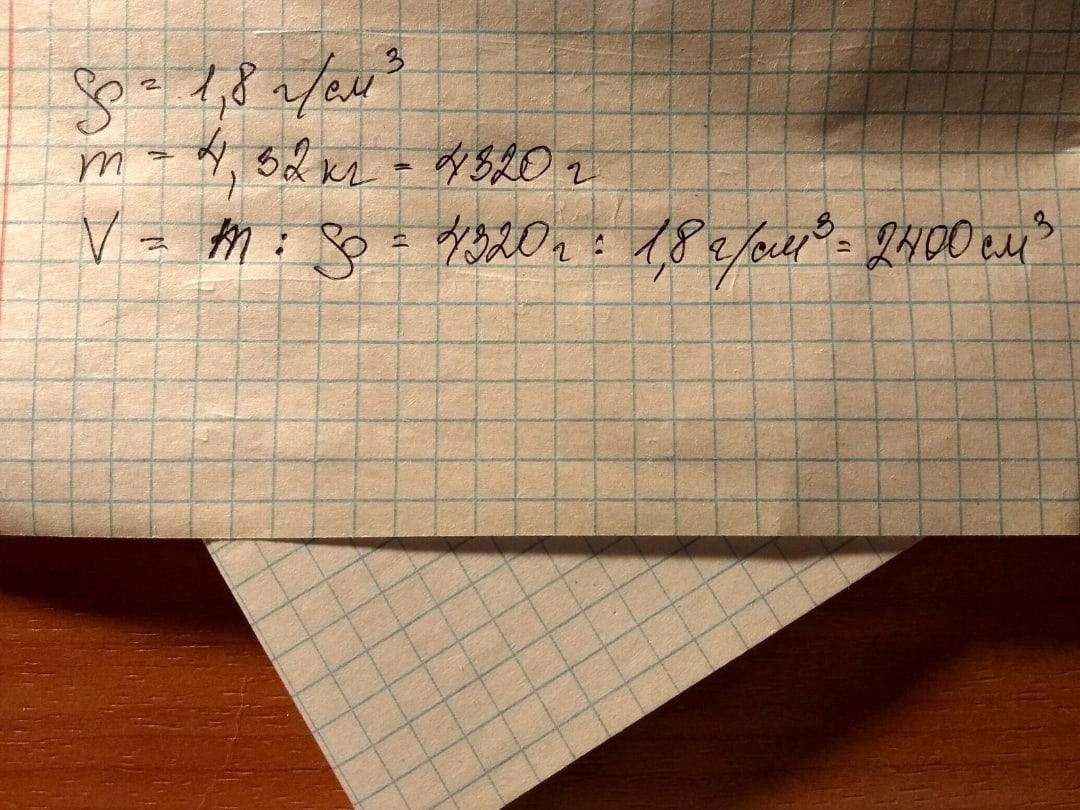 ρ = 1,8 г/см³
m = 4,32 кг = 4320 г
V = m : ρ = 4320 г : 1,8 г/см³ = 2400 см³